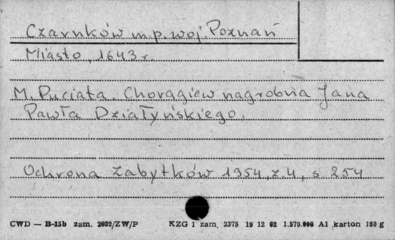 Czarnków m.p. woj. Poznań
Miasto, 1643 r.
M. Puciata. Chorągiew nagrobna Jana
Pawła Działyńskiego.
Ochrona Zabytków 1954, z. 4, s. 254
CWD — B-15b zam. 2032/ZW/P KZG 1 zam. 2375 19 12 62 1.570.000 A1 karton 160 g